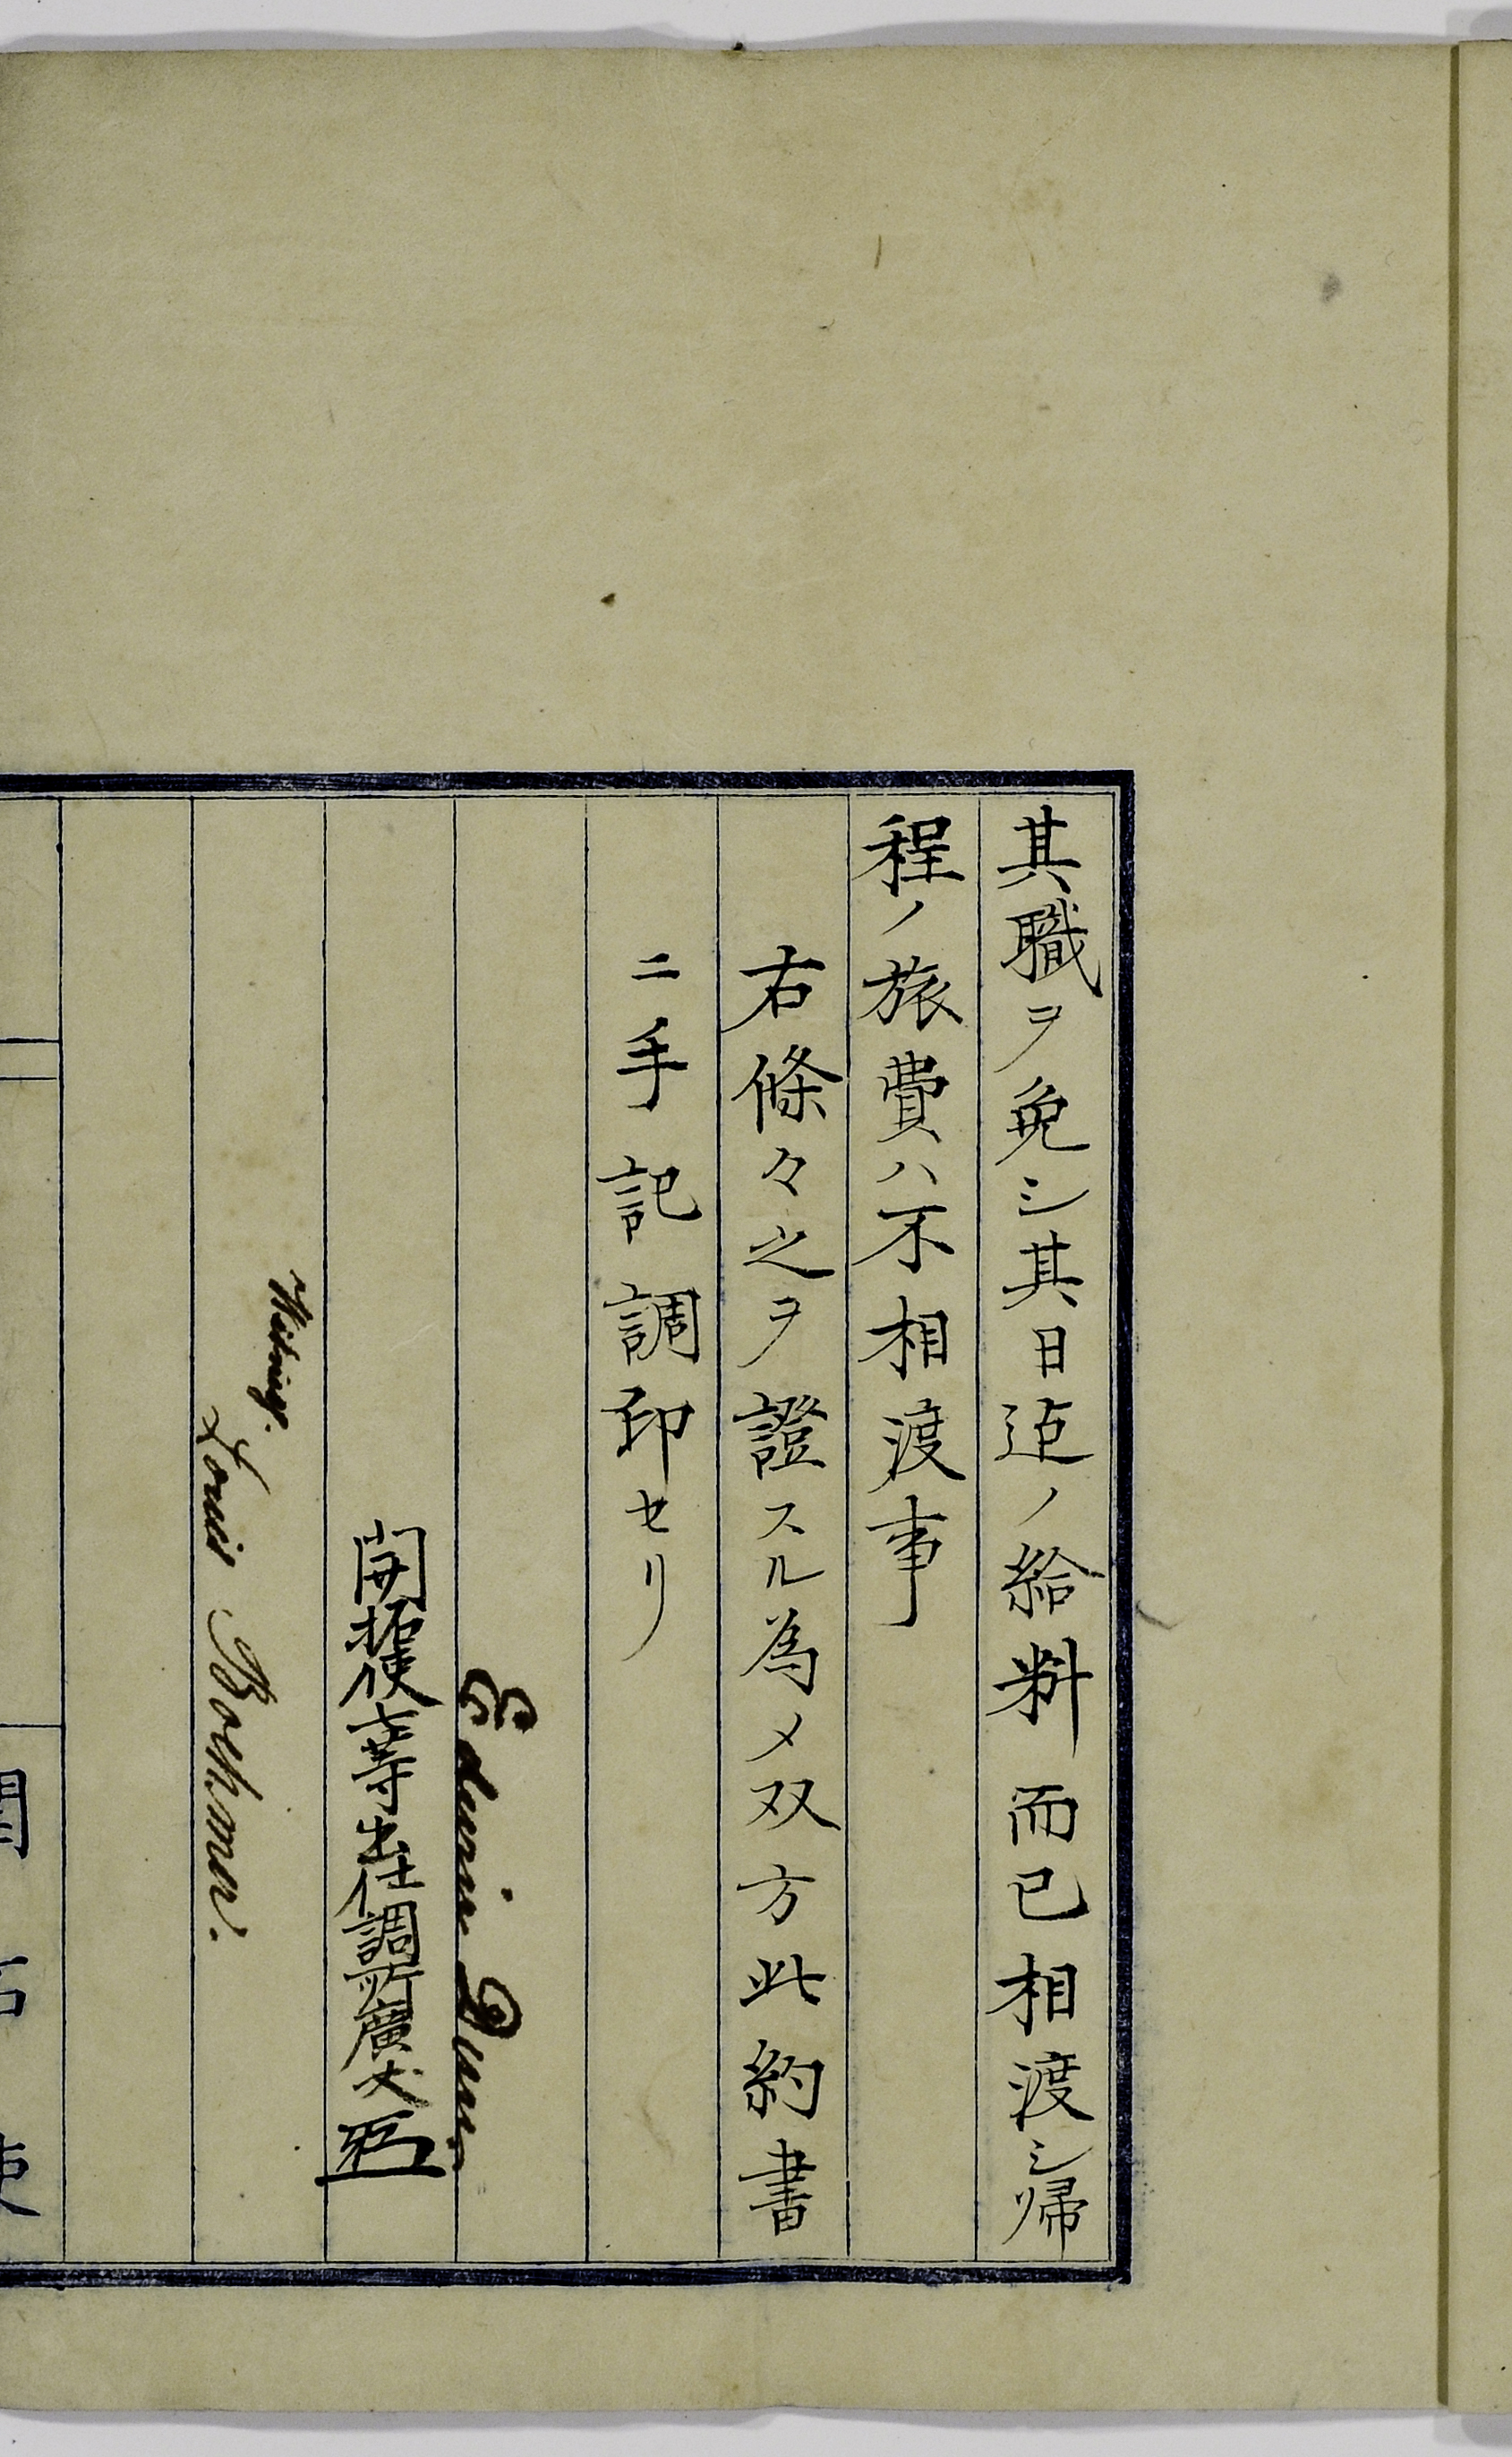 其職ヲ免シ其日迠ノ給料而已相渡シ帰
程ノ旅費ハ不相渡事
右條々之ヲ證スル為メ双方此約書
ニ手記調印セリ
Edwin Dun
開拓使七等出仕調所廣丈
Witness.
Louis Boehmer.
開拓使